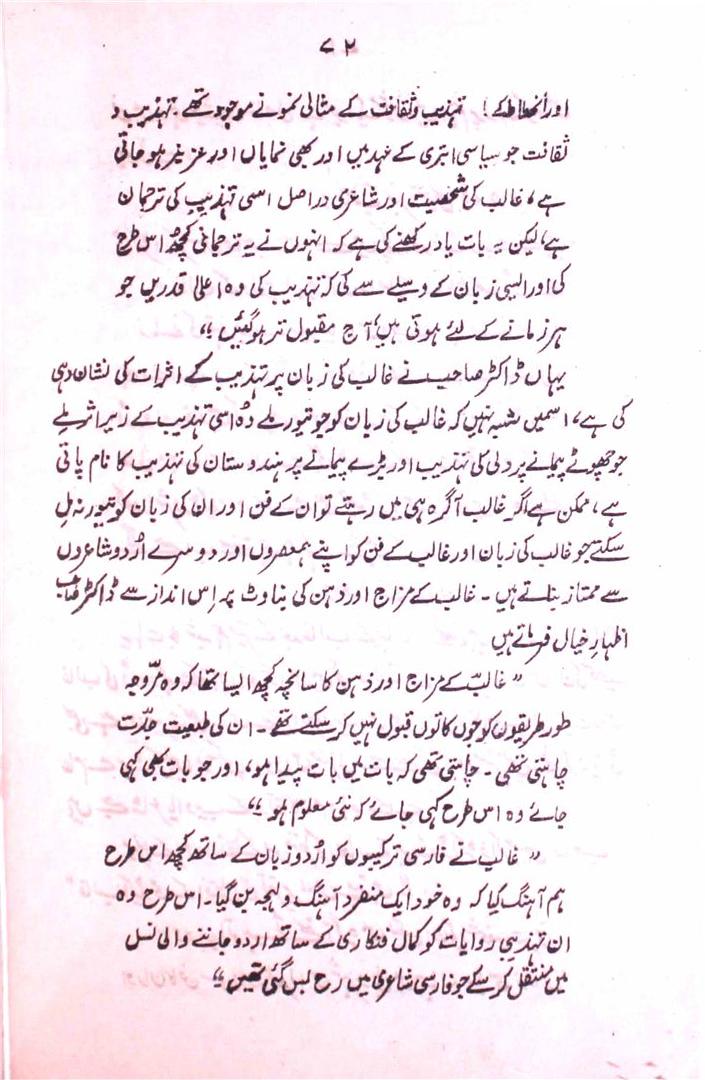 ۷۲
اور انحطاط کے! تہذیب و ثقافت کے مثالی نمونے موجود تھے۔ تہذیب و
ثقافت جو سیاسی ابتری کے عہد میں اور بھی نمایاں اور عزیز ہو جاتی
ہے، غالب کی شخصیت اور شاعری دراصل اسی تہذیب کی ترجمان
ہے، لیکن یہ بات یاد رکھنے کی ہے کہ انہوں نے یہ ترجمانی کچھ اس طرح
کی اور ایسی زبان کے وسیلے سے کی کہ تہذیب کی وہ اعلیٰ قدریں جو
ہر زمانے کے لئے ہوتی ہیں، آج مقبول تر ہو گئیں ؛؛
یہاں ڈاکٹر صاحب نے غالب کی زبان پر تہذیب کے اثرات کی نشان دہی
کی ہے، اسمیں شبہ نہیں کہ غالب کی زبان کو جو تیور ملے وہ اسی تہذیب کے زیر اثر ملے
جو چھوٹے پیمانے پر دلی کی تہذیب اور بڑے پیمانے پر ہندوستان کی تہذیب کا نام پاتی
ہے، ممکن ہے اگر غالب آگرہ ہی میں رہتے تو ان کے فن اور ان کی زبان کو تیور نہ مل
سکتے جو غالب کی زبان اور غالب کے فن کو اپنے ہمعصروں اور دوسرے اُردو شاعروں
سے ممتاز بناتے ہیں۔ غالب کے مزاج اور ذہن کی بناوٹ پر اِس انداز سے ڈاکٹر صاحب
اظہارِ خیال فرماتے ہیں
”غالب کے مزاج اور ذہن کا سانچہ کچھ ایسا تھا کہ وہ مروّجہ
طور طریقوں کو جوں کا توں قبول نہیں کر سکتے تھے۔ ان کی طبیعت جدّت
چاہتی تھی۔ چاہتی تھی کہ بات میں بات پیدا ہو، اور جو بات بھی کہی
جائے وہ اس طرح کہی جائے کہ نئی معلوم ہو ؛؛
”غالب نے فارسی ترکیبوں کو اُردو زبان کے ساتھ کچھ اس طرح
ہم آہنگ کیا کہ وہ خود ایک منفرد آہنگ و لہجہ بن گیا۔ اس طرح وہ
ان تہذیبی روایات کو کمال فنکاری کے ساتھ اردو جاننے والی نسل
میں منتقل کر سکے جو فارسی شاعری میں رچ بس گئی تھیں ؛؛